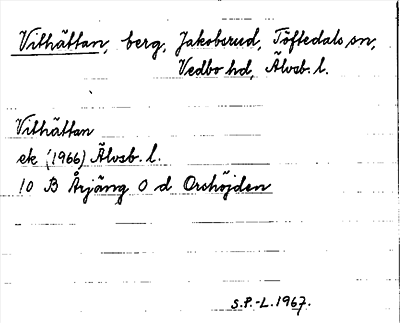 Vithättan, berg, Jakobsrud, Töftedals sn,
Vedbo hd, Älvsb. l.
Vithättan
ek (1966) Älvsb. l.
10 B Årjäng 0 d Orshöjden
S.P.-L. 1967.